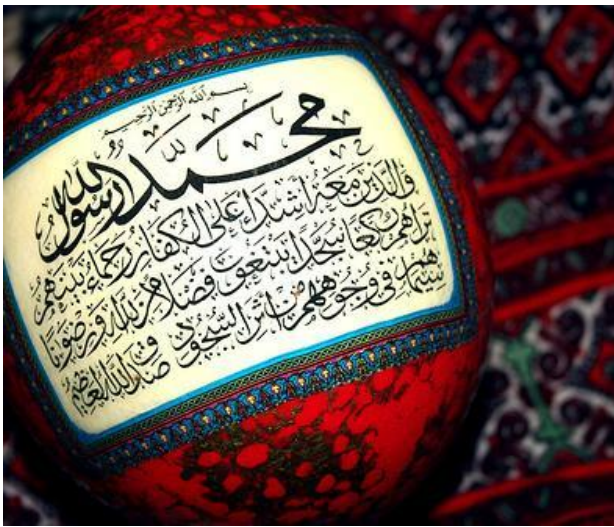 بسم الله الرحمن الرحيم
محمد رسول الله
والذين معه اشداء على الكفار رحماء بينهم
تراهم ركعا سجدا يبتغون فضلا من الله ورضوانا
سيماهم في وجوههم من اثر السجود
صدق الله العظيم